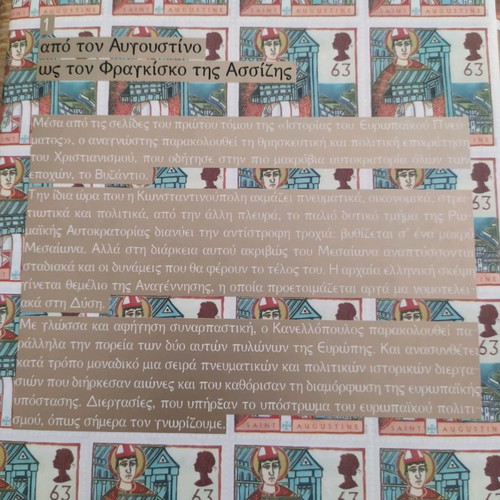 1
από τον Αυγουστίνο
ως τον Φραγκίσκο της Ασσίζης
Μέσα από τις σελίδες του πρώτου τόμου της «Ιστορίας του Ευρωπαϊκού Πνεύ-
ματος», ο αναγνώστης παρακολουθεί τη θρησκευτική και πολιτική επικράτηση
του Χριστιανισμού, που οδήγησε στην πιο μακρόβια αυτοκρατορία όλων των
εποχών, το Βυζάντιο.
Την ίδια ώρα που η Κωνσταντινούπολη ακμάζει πνευματικά, οικονομικά, στρα-
τιωτικά και πολιτικά, από την άλλη πλευρά, το παλιό δυτικό τμήμα της Ρω-
μαϊκής Αυτοκρατορίας διανύει την αντίστροφη τροχιά: βυθίζεται σ' ένα μακρύ
Μεσαίωνα. Αλλά στη διάρκεια αυτού ακριβώς του Μεσαίωνα αναπτύσσονται
σταδιακά και οι δυνάμεις που θα φέρουν το τέλος του. Η αρχαία ελληνική σκέψη
γίνεται θεμέλιο της Αναγέννησης, η οποία προετοιμάζεται αργά μα νομοτελει-
ακά στη Δύση.
Με γλώσσα και αφήγηση συναρπαστική, ο Κανελλόπουλος παρακολουθεί πα-
ράλληλα την πορεία των δύο αυτών πυλώνων της Ευρώπης. Και ανασυνθέτει
κατά τρόπο μοναδικό μια σειρά πνευματικών και πολιτικών ιστορικών διεργα-
σιών που διήρκεσαν αιώνες και που καθόρισαν τη διαμόρφωση της ευρωπαϊκής
υπόστασης. Διεργασίες, που υπήρξαν το υπόστρωμα του ευρωπαϊκού πολιτι-
σμού, όπως σήμερα τον γνωρίζουμε.
63
63
63
63
SAINT AUGUSTINE
SAINT AUGUSTINE
63
63
63